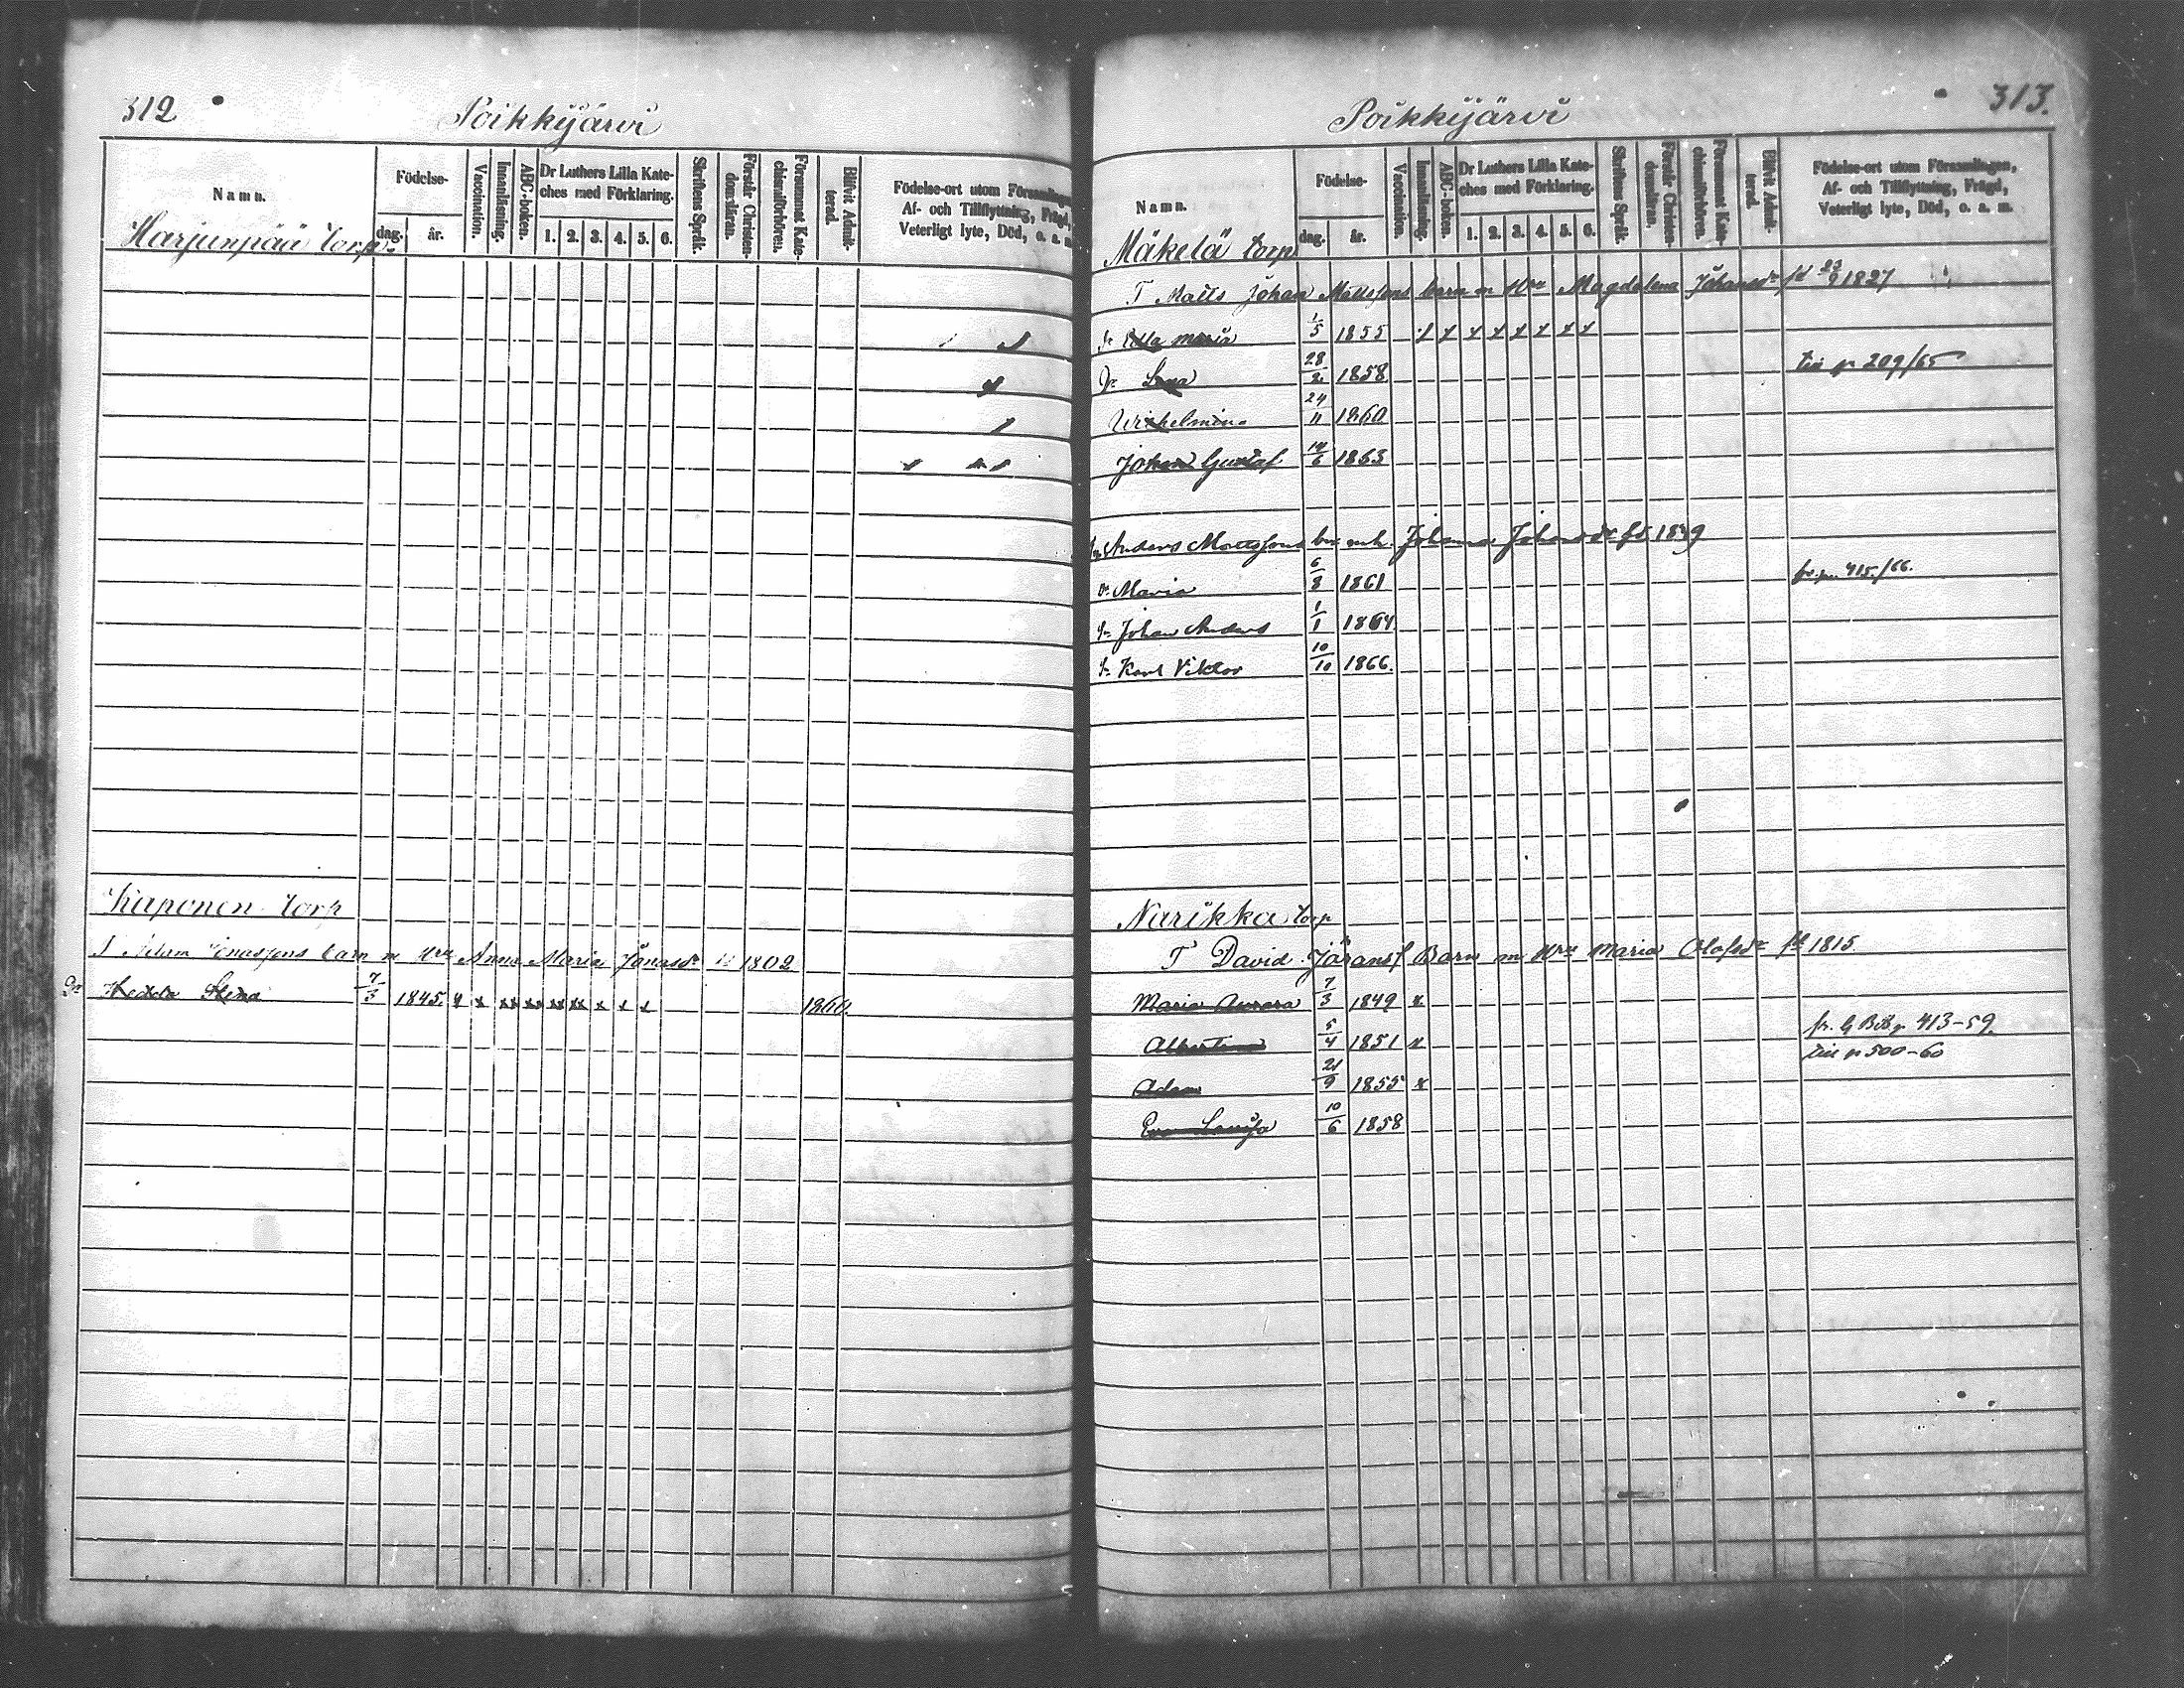 312
Poikkijärvi
Namn.
Födelse-
dag.
år.
Vaccination.
Innanläsning.
ABC-boken.
Dr Luthers Lilla Kate-
ches med Förklaring.
1. 2. 3. 4. 5. 6.
Skriftens Språk.
Förstår Christen-
domsläran.
Försummat Kate-
chismiförhören.
Blifvit Admit-
terad.
Födelse-ort utom Församlingen,
Af- och Tillflyttning, Frägd,
Veterligt lyte, Död, o. a. m.
Harjunpää torp.
Kaponen torp
T Adam Jonassons barn m Hru Anna Maria Jonasdr 1802
Dr Hedda Stina 7/3 1845. x x xx xx xx xx x x x 1860.
313.
Poikkijärvi
Namn.
Födelse-
dag.
år.
Vaccination.
Innanläsning.
ABC-boken.
Dr Luthers Lilla Kate-
ches med Förklaring.
1. 2. 3. 4. 5. 6.
Skriftens Språk.
Förstår Christen-
domsläran.
Försummat Kate-
chismiförhören.
Blifvit Admit-
terad.
Födelse-ort utom Församlingen,
Af- och Tillflyttning, Frägd,
Veterligt lyte, Död, o. a. m.
Mäkelä torp
T Matts Johan Mattssons barn m Hru Magdalena Johansdr fd 23/9 1827
Maria 1/5 1855 x x x x x x x x
Dr Lena 28/2 1858 till p 209/65
Wilhelmina 24/11 1860
Johan Gustaf 14/6 1863
Anders Mattssons bn m h. Johanna Johansdr fd 1839
Dr Maria 6/8 1861 fr. p. 415./66.
Sn Johan Anders 1/1 1864
Sn Karl Viktor 10/10 1866.
Narikka torp
T David Göranss Barn m Hru Maria Olofsdr fd 1815
Maria Aurora 7/3 1849 x
Albertina 5/4 1851 x fr. G Bok p 413-59.
till p 500-60
Adam 21/9 1855 x
Eva Lovisa 10/6 1858